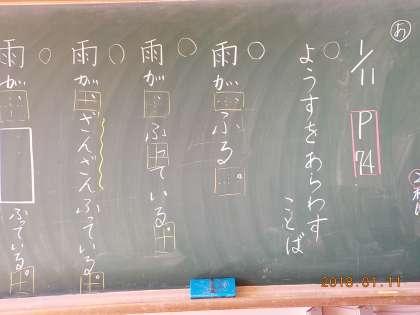 あ
1/11
P74
ようすをあらわす
ことば
雨がふる。
雨がふっている。
雨がざんざんふっている。
雨が
ふっている。
2018.01.11